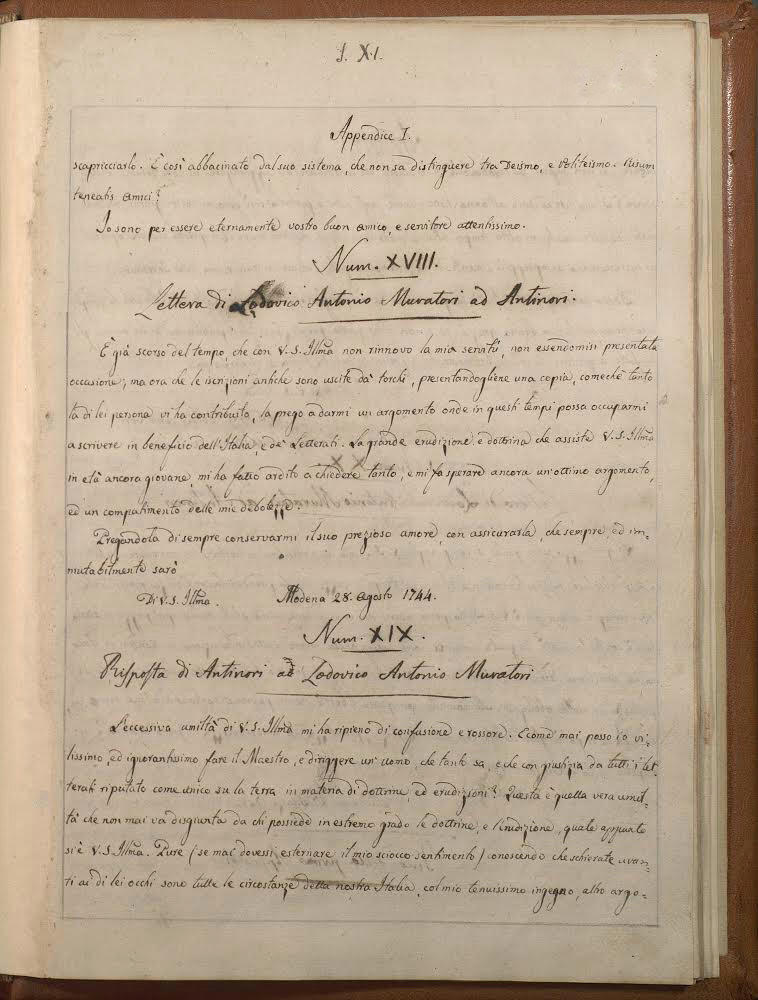 §. XI.
Appendice I.
scapricciarlo. È così abbacinato dal suo sistema, che non sa distinguere tra Deismo, e Politeismo. Risum
teneatis Amici?
Io sono per essere eternamente vostro buon amico, e servitore attentissimo.
Num. XVIII.
Lettera di Lodovico Antonio Muratori ad Antinori.
È già scorso del tempo, che con V. S. Illma non rinnovo la mia servitù, non essendomisi presentata
occasione, ma ora che le iscrizioni antiche sono uscite da' torchi, presentandogliene una copia, comechè tanto
la di lei persona vi ha contribuito, la prego a darmi un argomento onde in questi tempi possa occuparmi
a scrivere in beneficio dell'Italia, e de' Letterati. La grande erudizione e dottrina che assiste V. S. Illma
in età ancora giovane, mi ha fatto ardito a chiedere tanto, e mi fa sperare ancora un'ottimo argomento,
ed un compatimento delle mie debolezze.
Pregandola di sempre conservarmi il suo prezioso amore, con assicurarla, che sempre ed im=
mutabilmente sarò
Di V. S. Illma. Modena 28. Agosto 1744.
Num. XIX.
Risposta di Antinori ad Lodovico Antonio Muratori
L'eccessiva umiltà di V. S. Illma mi ha ripieno di confusione e rossore. E come mai posso io vi=
lissimo, ed ignorantissimo fare il Maestro, e diriggere un'uomo, che tanto sa, e che con giustizia da tutti i let=
terati riputato come unico su la terra in materia di dottrine, ed erudizioni? Questa è quella vera umil=
tà che non mai va disgiunta da chi possiede in estremo grado le dottrine, e l'erudizione, quale appunto
si è V. S. Illma. Pure (se mai dovessi esternare il mio sciocco sentimento) conoscendo che schierate avan=
ti ai di lei occhi sono tutte le circostanze della nostra Italia, col mio tenuissimo ingegno, altro argo=